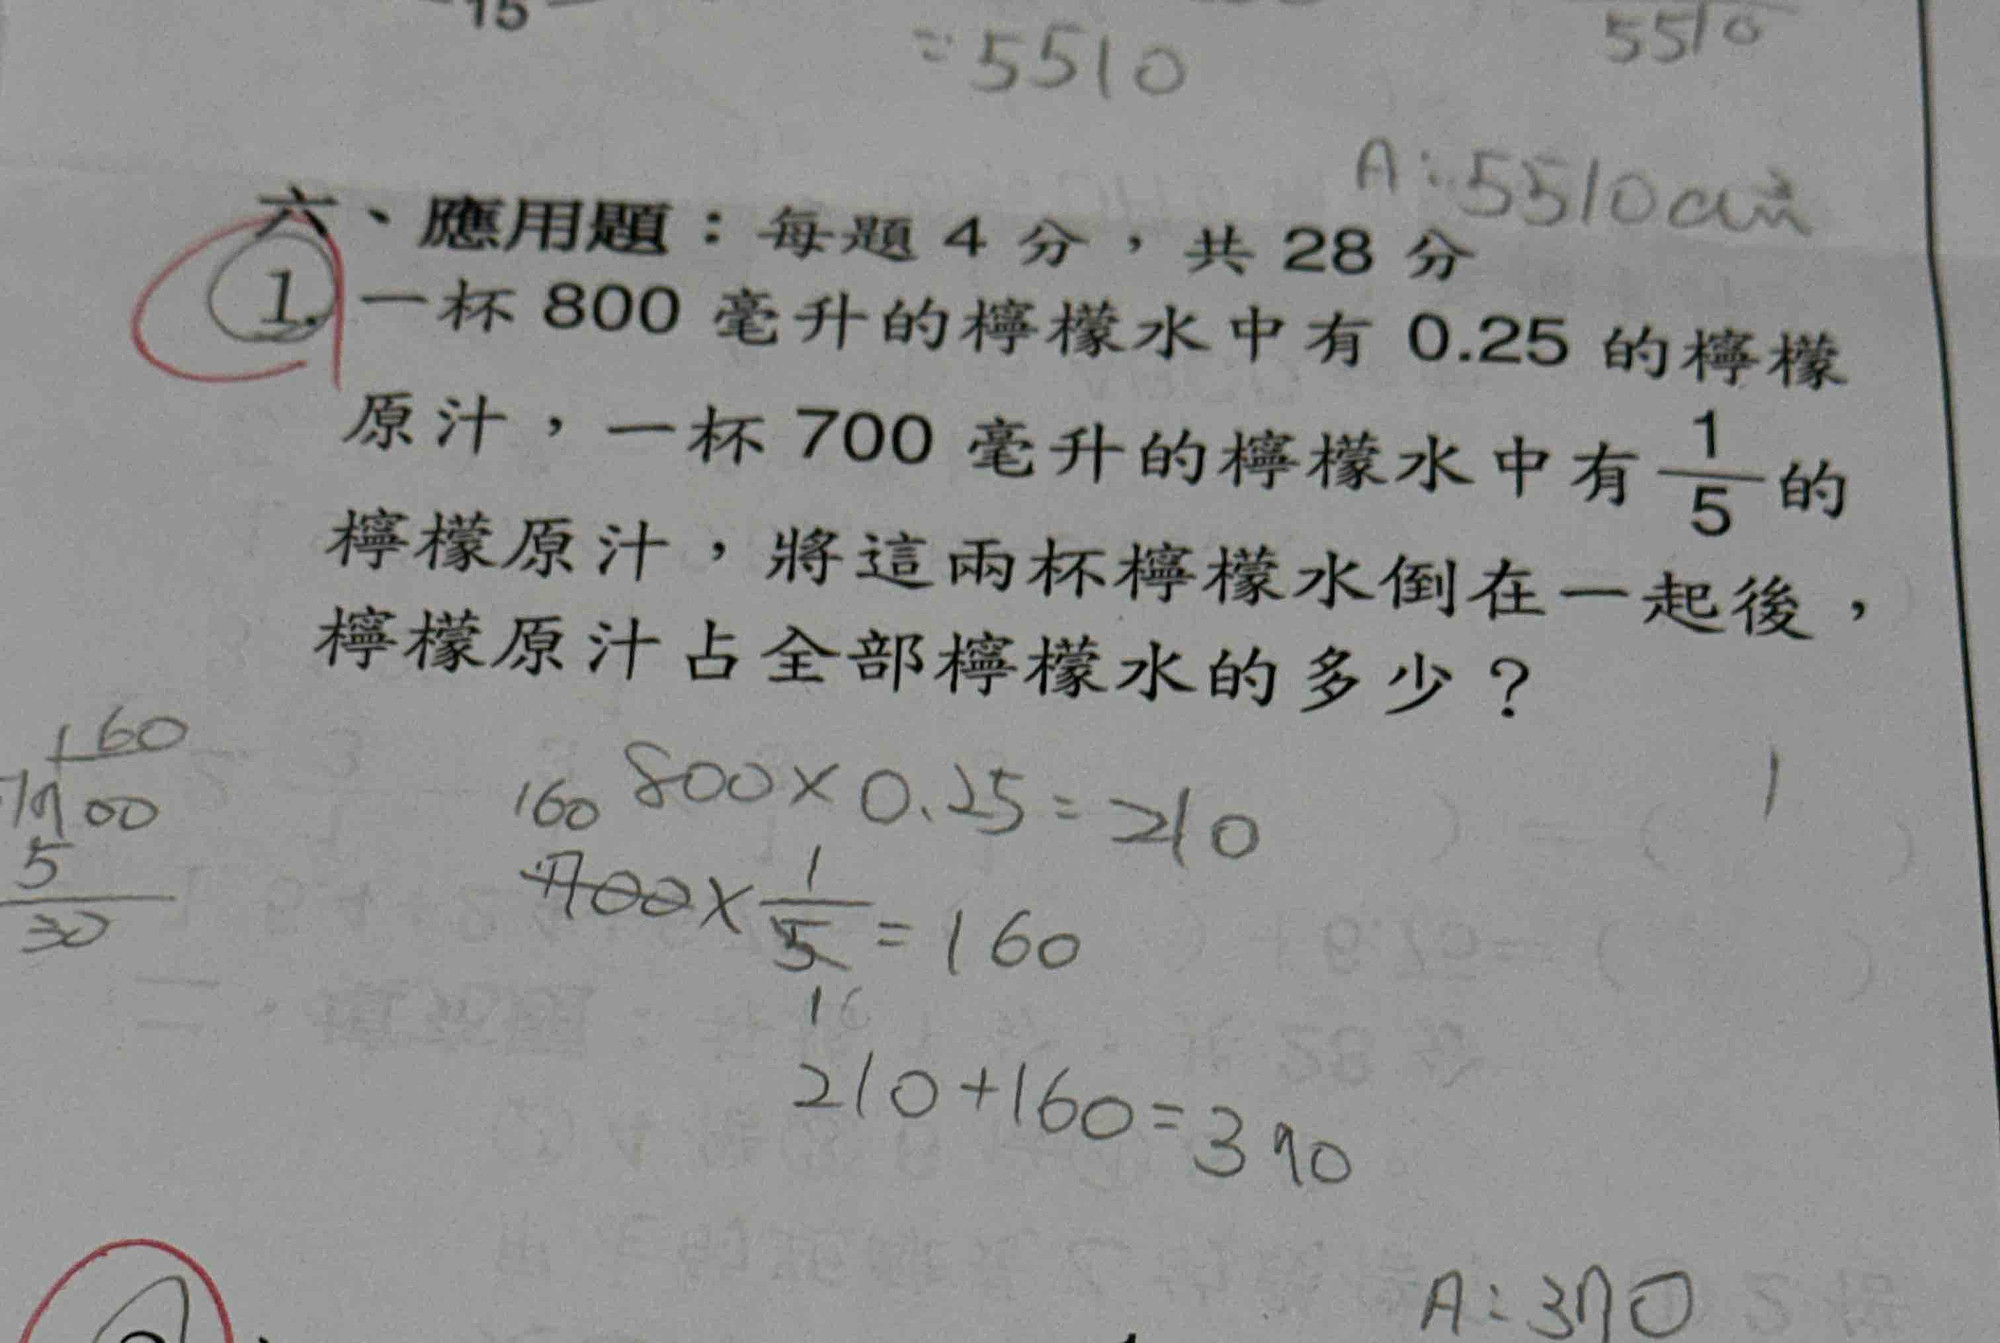 15
=5510
5510
A:5510cm³
六、應用題：每題 4 分，共 28 分
1. 一杯 800 毫升的檸檬水中有 0.25 的檸檬
原汁，一杯 700 毫升的檸檬水中有 1/5 的
檸檬原汁，將這兩杯檸檬水倒在一起後，
檸檬原汁占全部檸檬水的多少？
160
700
5
30
800×0.25=210
160
700×1/5=160
1
210+160=370
A:370